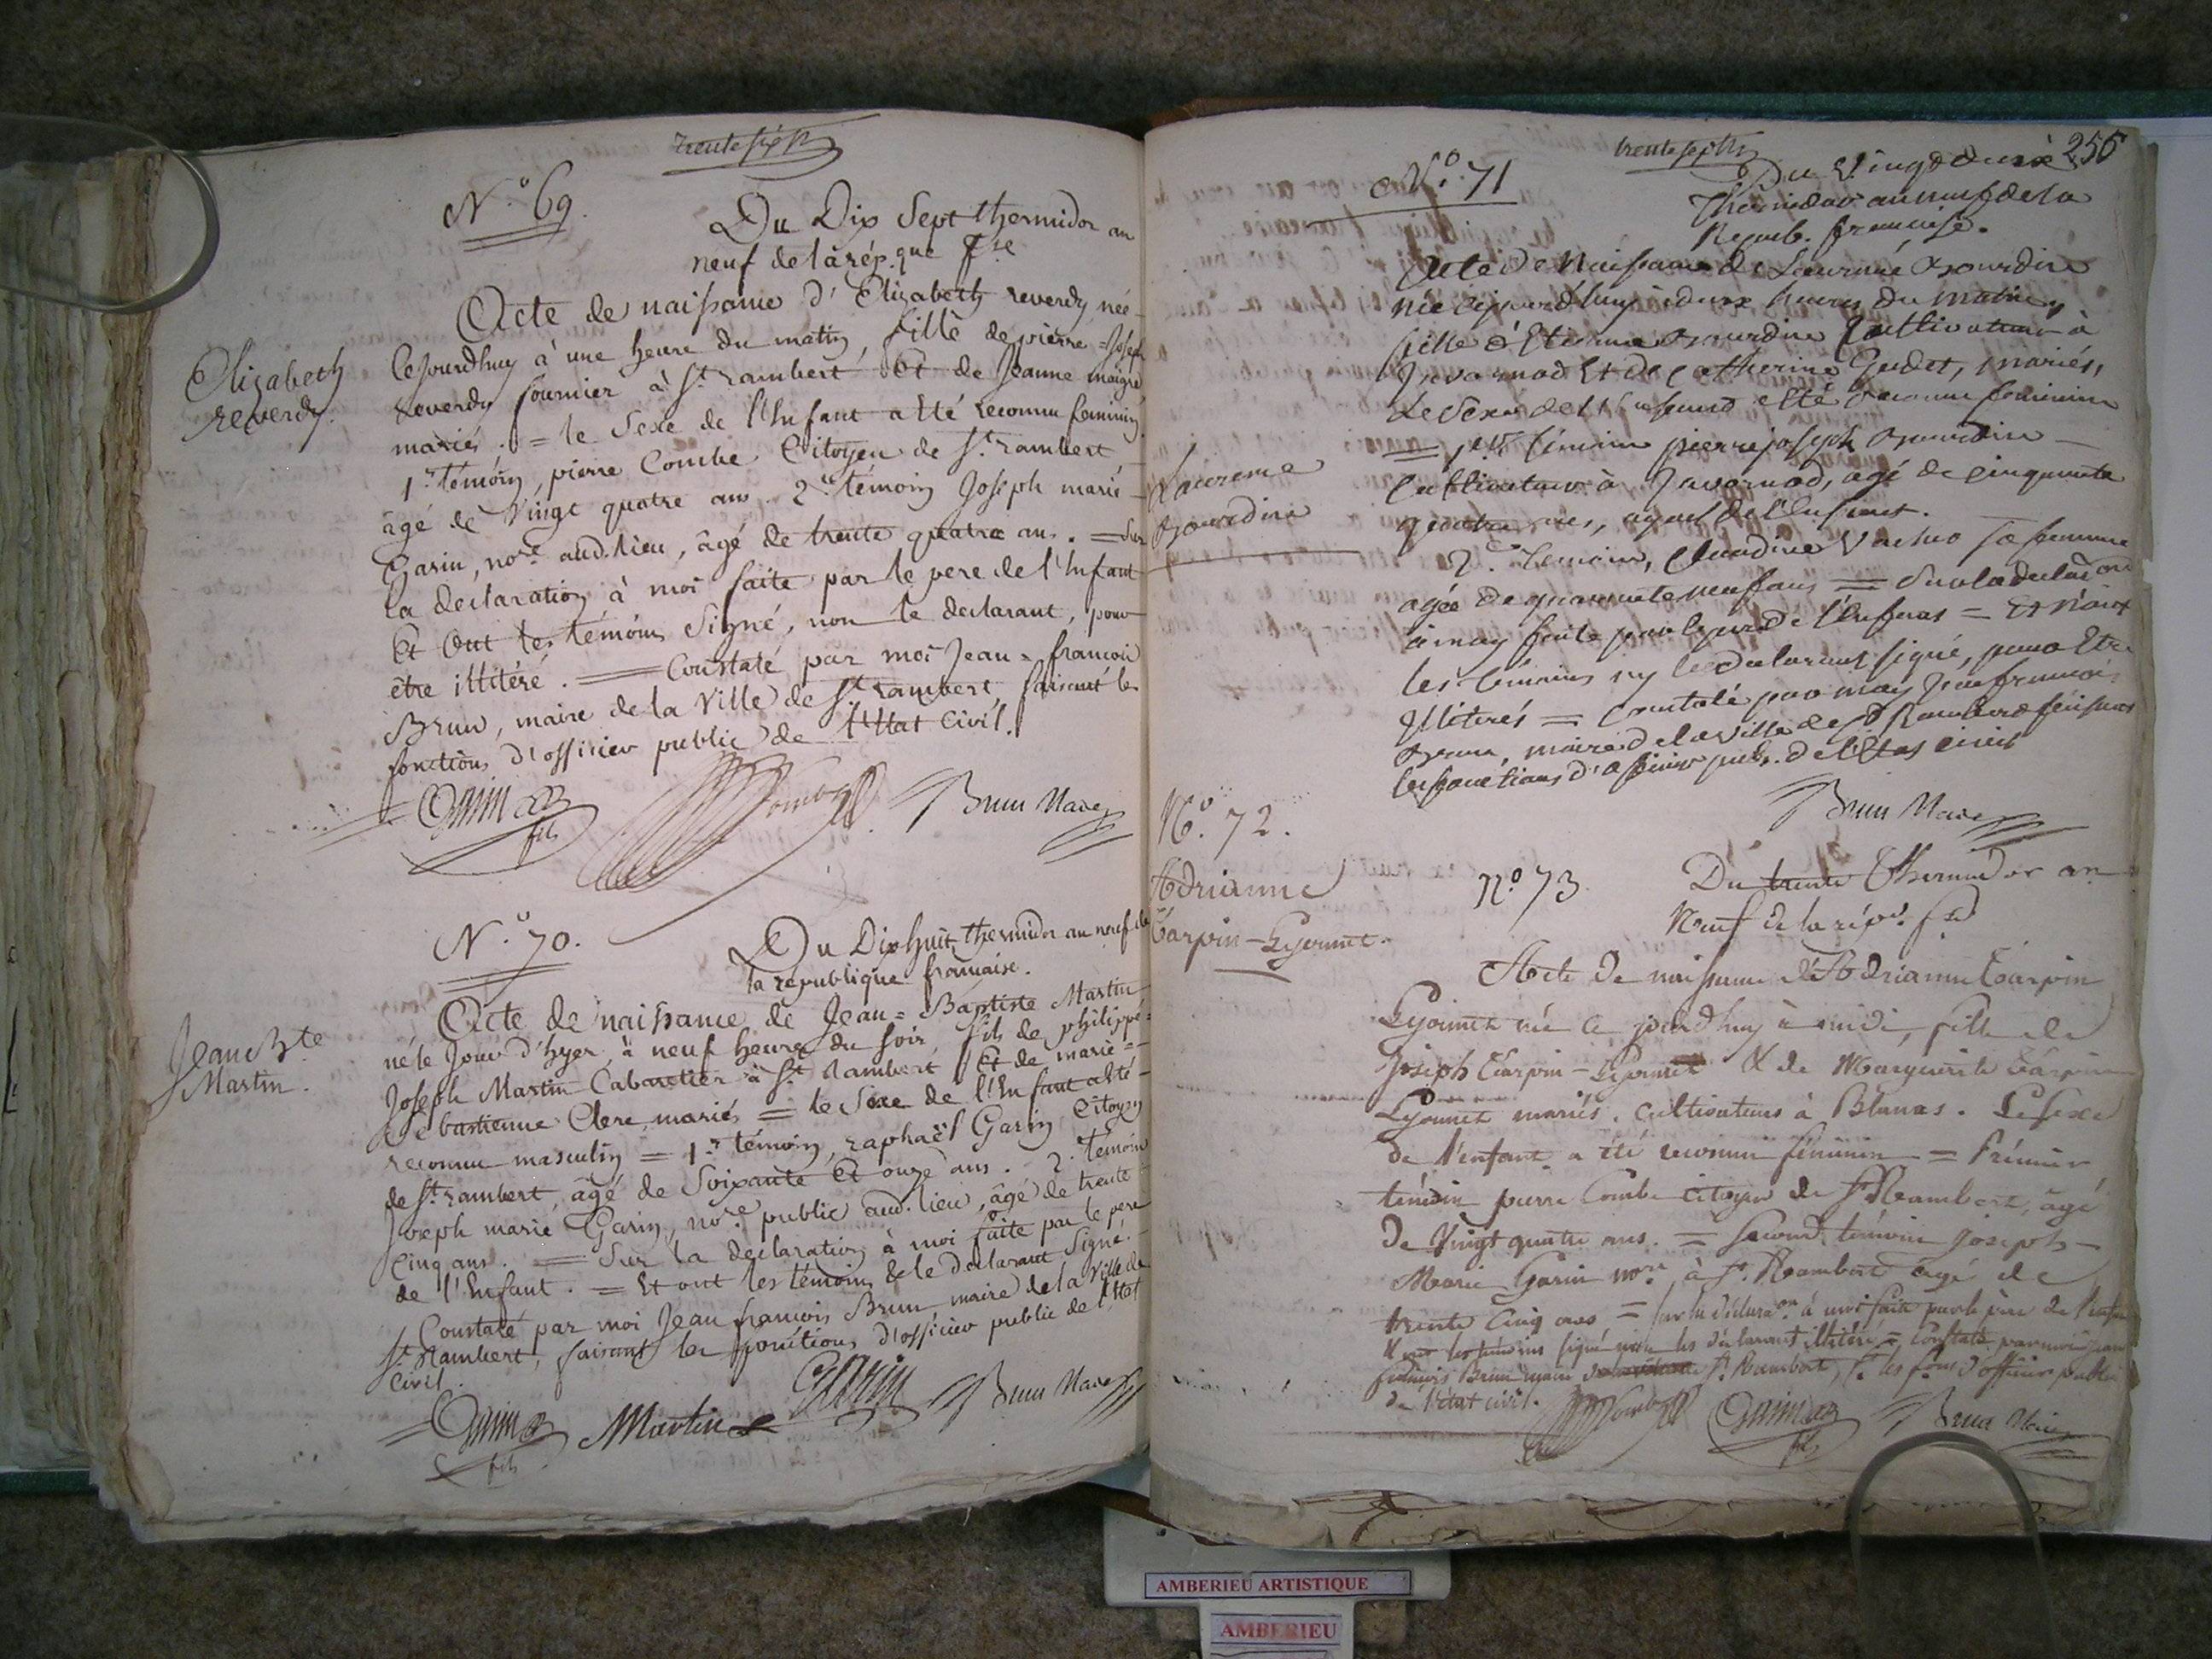 trente six
N.º 69.
Du Dix Sept thermidor an
neuf de la rép.que f.se
Elizabeth
reverdy.
Acte de naissance d' Elizabeth reverdy née
Cejourdhuy à une heure du matin, fille de pierre = Joseph
reverdy fournier à S.t rambert Et de Jeanne maigre
mariés. = le Sexe de l'Enfant a Eté reconnu feminin.
1.er témoin, pierre Combe Citoyen de S.t rambert
âgé de Vingt quatre ans. 2.e témoin Joseph marie
Garin, no.re aud. lieu, âgé de trente quatre ans. = Sur
la declaration à moi faite par le pere de l'Enfant
Et Ont les témoins Signé, non le declarant, pour
être illitéré. = Constaté par moi Jean = francois
Brun, maire de la Ville de S.t rambert, faisant les
fonctions d'officier public de l'Etat Civil.
Garin fils Combe Brun Maire
N.º 70.
Du Dixhuit thermidor an neuf de
la republique francaise.
Jean B.te
Martin.
Acte de naissance de Jean = Baptiste Martin
né le Jour d'hyer à neuf heures du soir, fils de philippe =
Joseph Martin Cabaretier à S.t Rambert Et de marie =
Sebastienne Clerc mariés = le Sexe de l'Enfant a Eté
reconnu masculin = 1.er témoin, raphaël Garin Citoyen
de S.t rambert âgé de Soixante Et onze ans. 2. témoin
Joseph marie Garin, no.re public aud. lieu, âgé de trente
Cinq ans. = Sur la declaration à moi faite par le pere
de l'Enfant. = Et ont les témoins & le declarant Signé.
Constaté par moi Jean francois Brun maire de la Ville de
S.t Rambert, faisant les fonctions d'officier public de l'Etat
Civil.
Garin fils Martin Garin Brun Maire
trente sept
256
N.º 71
Du Vingt deux
Thermidor an neuf de la
Repub. francaise.
Acte de Naissance de Laurence Bourdin
née cejourd'huy à deux heures du matin,
fille d'Etienne Bourdin Cultivateur à
Javornod Et de Catherine Gudet, mariés,
Le Sexe de l'Enfant a Eté reconnu feminin
= 1.er témoin pierre joseph Bourdin
Laurence
Bourdin
Cultivateur à Javornod, agé de cinquante
quatre ans, ayeul de l'Enfant.
2.e temoin, Claudine Vachio sa femme
agée de quarante neuf ans = Sur la declaraon
à moy faite par le pere de l'Enfant = Et n'ont
les témoins ny le declarant signé, pour Etre
Illiterés = Constaté par moy Jean francois
Brun, maire de la Ville de S.t Rambert faisant
les fonctions d'officier pub. de l'Etat civil
Brun Maire
N.º 72.
Adrianne
Carpin-Lyonnet.
N.º 73.
Du trente Thermidor an
Neuf de la rép.e f.se
Acte de naissance d'Adrianne Carpin
Lyonnet née ce jourdhuy à midi, fille de
Joseph Carpin-Lyonnet & de Marguerite Carpin
Lyonnet mariés. cultivateurs à Blanas. Le sexe
de l'enfant a été reconnu féminin = Prémier
témoin pierre Combe citoyen de S.t Rambert, âgé
de Vingt quatre ans. = Second témoin Joseph-
Marie Garin no.re à S.t Rambert âgé de
trente Cinq ans = sur la déclaraon à moi faite par le père de l'enfant
& ont les témoins signé non les déclarant illitéré = Constaté par moi jean
françois Brun maire de S.t Rambert, f.t les fons d'officier public
de l'état civil.
Combe Garin fils Brun Maire
AMBERIEU ARTISTIQUE
AMBERIEU